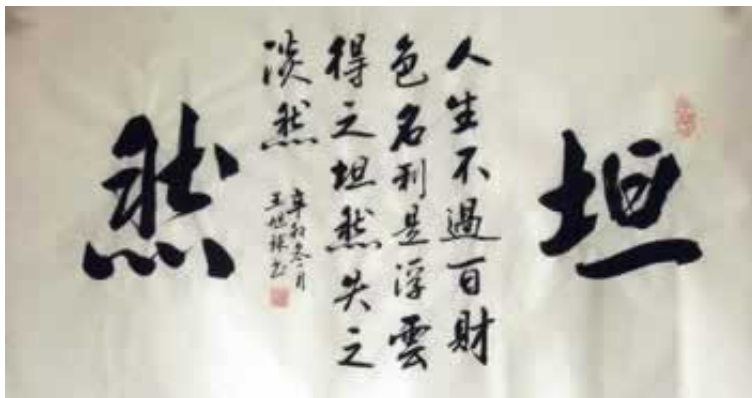 坦
人生不過百財
色名利是浮雲
得之坦然失之
淡然
辛卯冬月
王旭
书
然